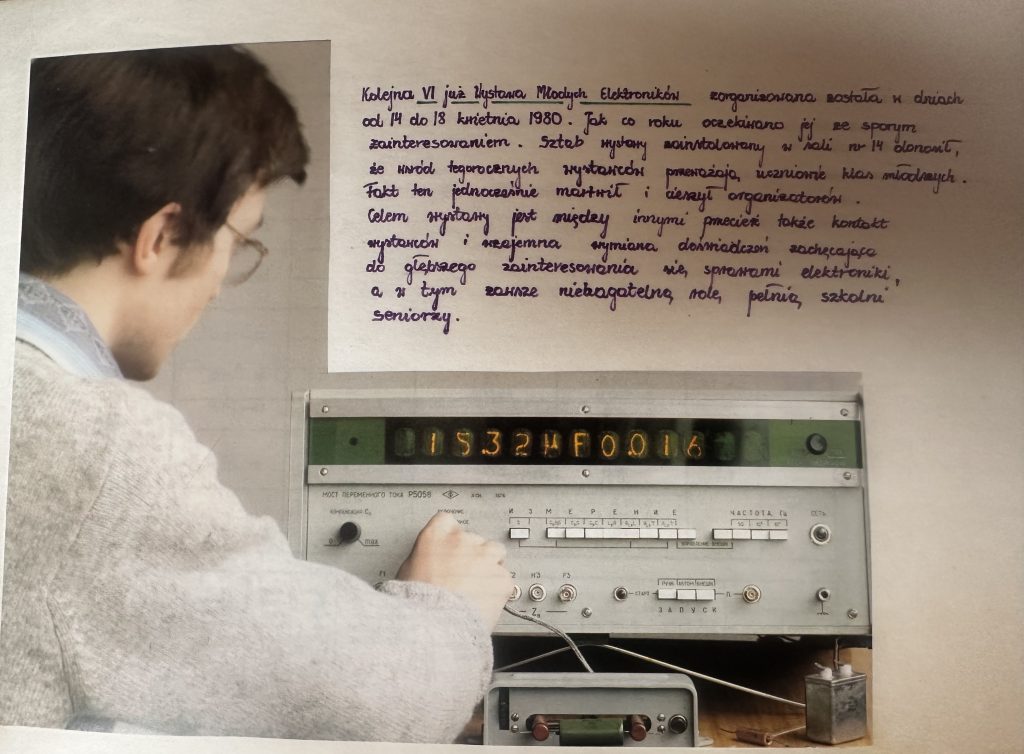 Kolejna VI już Wystawa Młodych Elektroników zorganizowana została w dniach
od 14 do 18 kwietnia 1980. Jak co roku oczekiwano jej ze sporym
zainteresowaniem. Sztab wystawy zainstalowany w sali nr 14 donosił,
że wśród tegorocznych wystawców przeważają uczniowie klas młodszych.
Fakt ten jednocześnie martwił i cieszył organizatorów.
Celem wystawy jest między innymi przecież także kontakt
wystawców i wzajemna wymiana doświadczeń zachęcająca
do głębszego zainteresowania się sprawami elektroniki,
a w tym zawsze niebagatelną rolę pełnią szkolni
seniorzy.
1532µF0.016
МОСТ ПЕРЕМЕННОГО ТОКА Р5058
КОМПЕНСАЦИЯ C
0 max
ИЗМЕРЕНИЕ
ЧАСТОТА, Гц
СЕТЬ
F1
F3
СТАРТ
П
ЗАПУСК